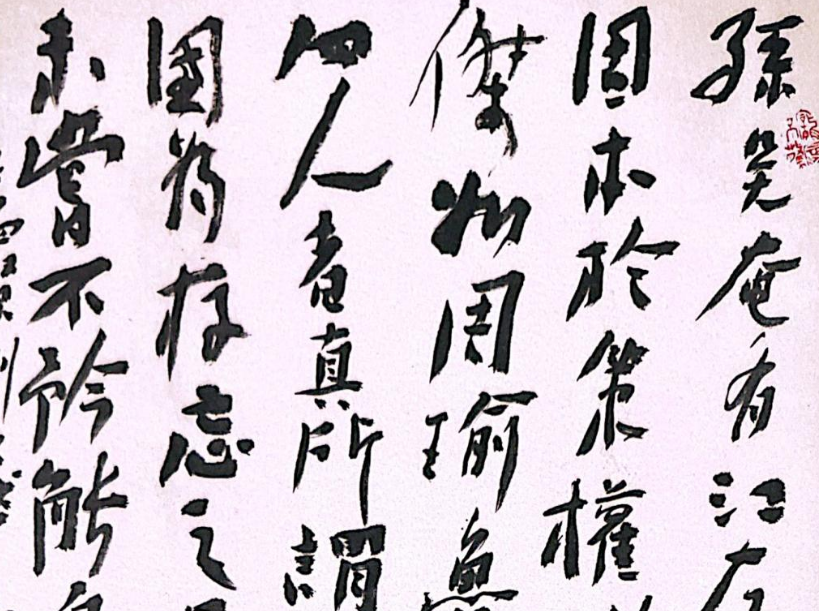 孫吳奄有江左
固本於策權
傑如周瑜魯
四人者真所謂
國為存忘之
未嘗不矜能自